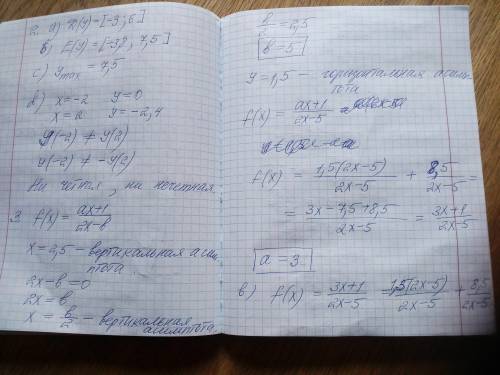 2. a) D(y) = [-3; 6]
b) E(y) = [-3,2; 7,5]
c) y max = 7,5
d) x = -2 y = 0
x = 2 y = -2,4
y(-2) ≠ y(2)
y(-2) ≠ -y(2)
Ни чётная, ни нечетная
3. f(x) = ax+1 / 2x-b
x = 2,5 - вертикальная асим
птота.
2x-b=0
2x = b
x = b/2 - вертикальная
асимптота.
b/2 = 2,5
b = 5
y = 1,5 - горизонтальная асимп
тота
f(x) = ax+1 / 2x-5
f(x) = 1,5(2x-5) / 2x-5 + 8,5 / 2x-5 =
= 3x-7,5+8,5 / 2x-5 = 3x+8 / 2x-5
a = 3
в) f(x) = 3x+1 / 2x-5 1,5(2x-5) / 2x-5 + 8,5 / 2x-5